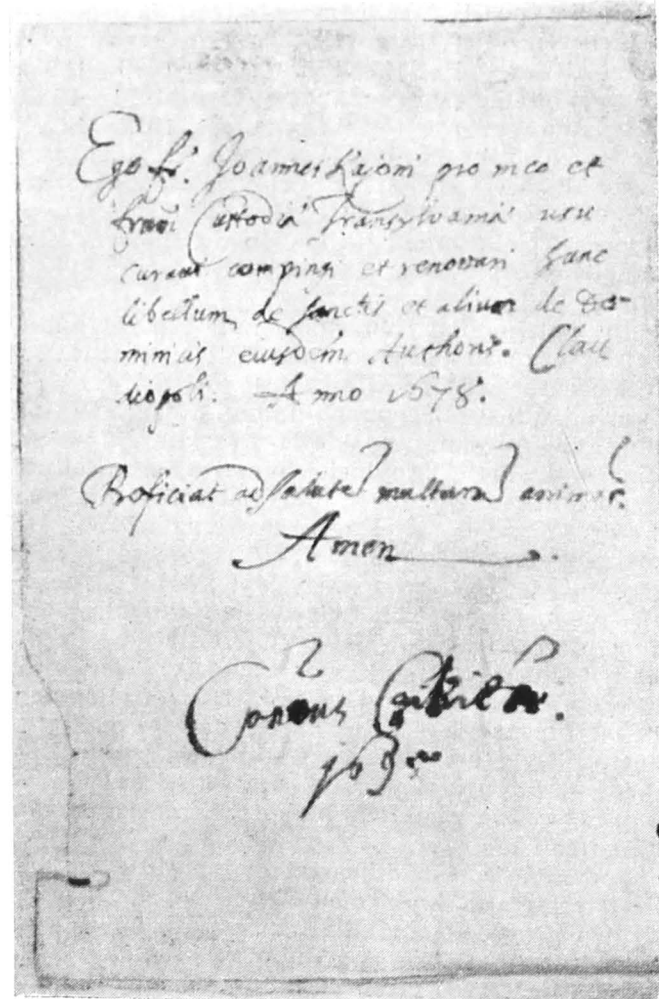 Ego fr. Joannes Kajoni pro meo et
fratrũ Custodiæ Transylvaniæ usu
curavi compingi et renovari hunc
libellum, de sanctis et alium de Do-
minicis eiusdem Authoris. Clau
diopoli. Anno 1678.
Proficiat ad salutẽ multarũ animar.
Amen
Conventus Csikiẽn.